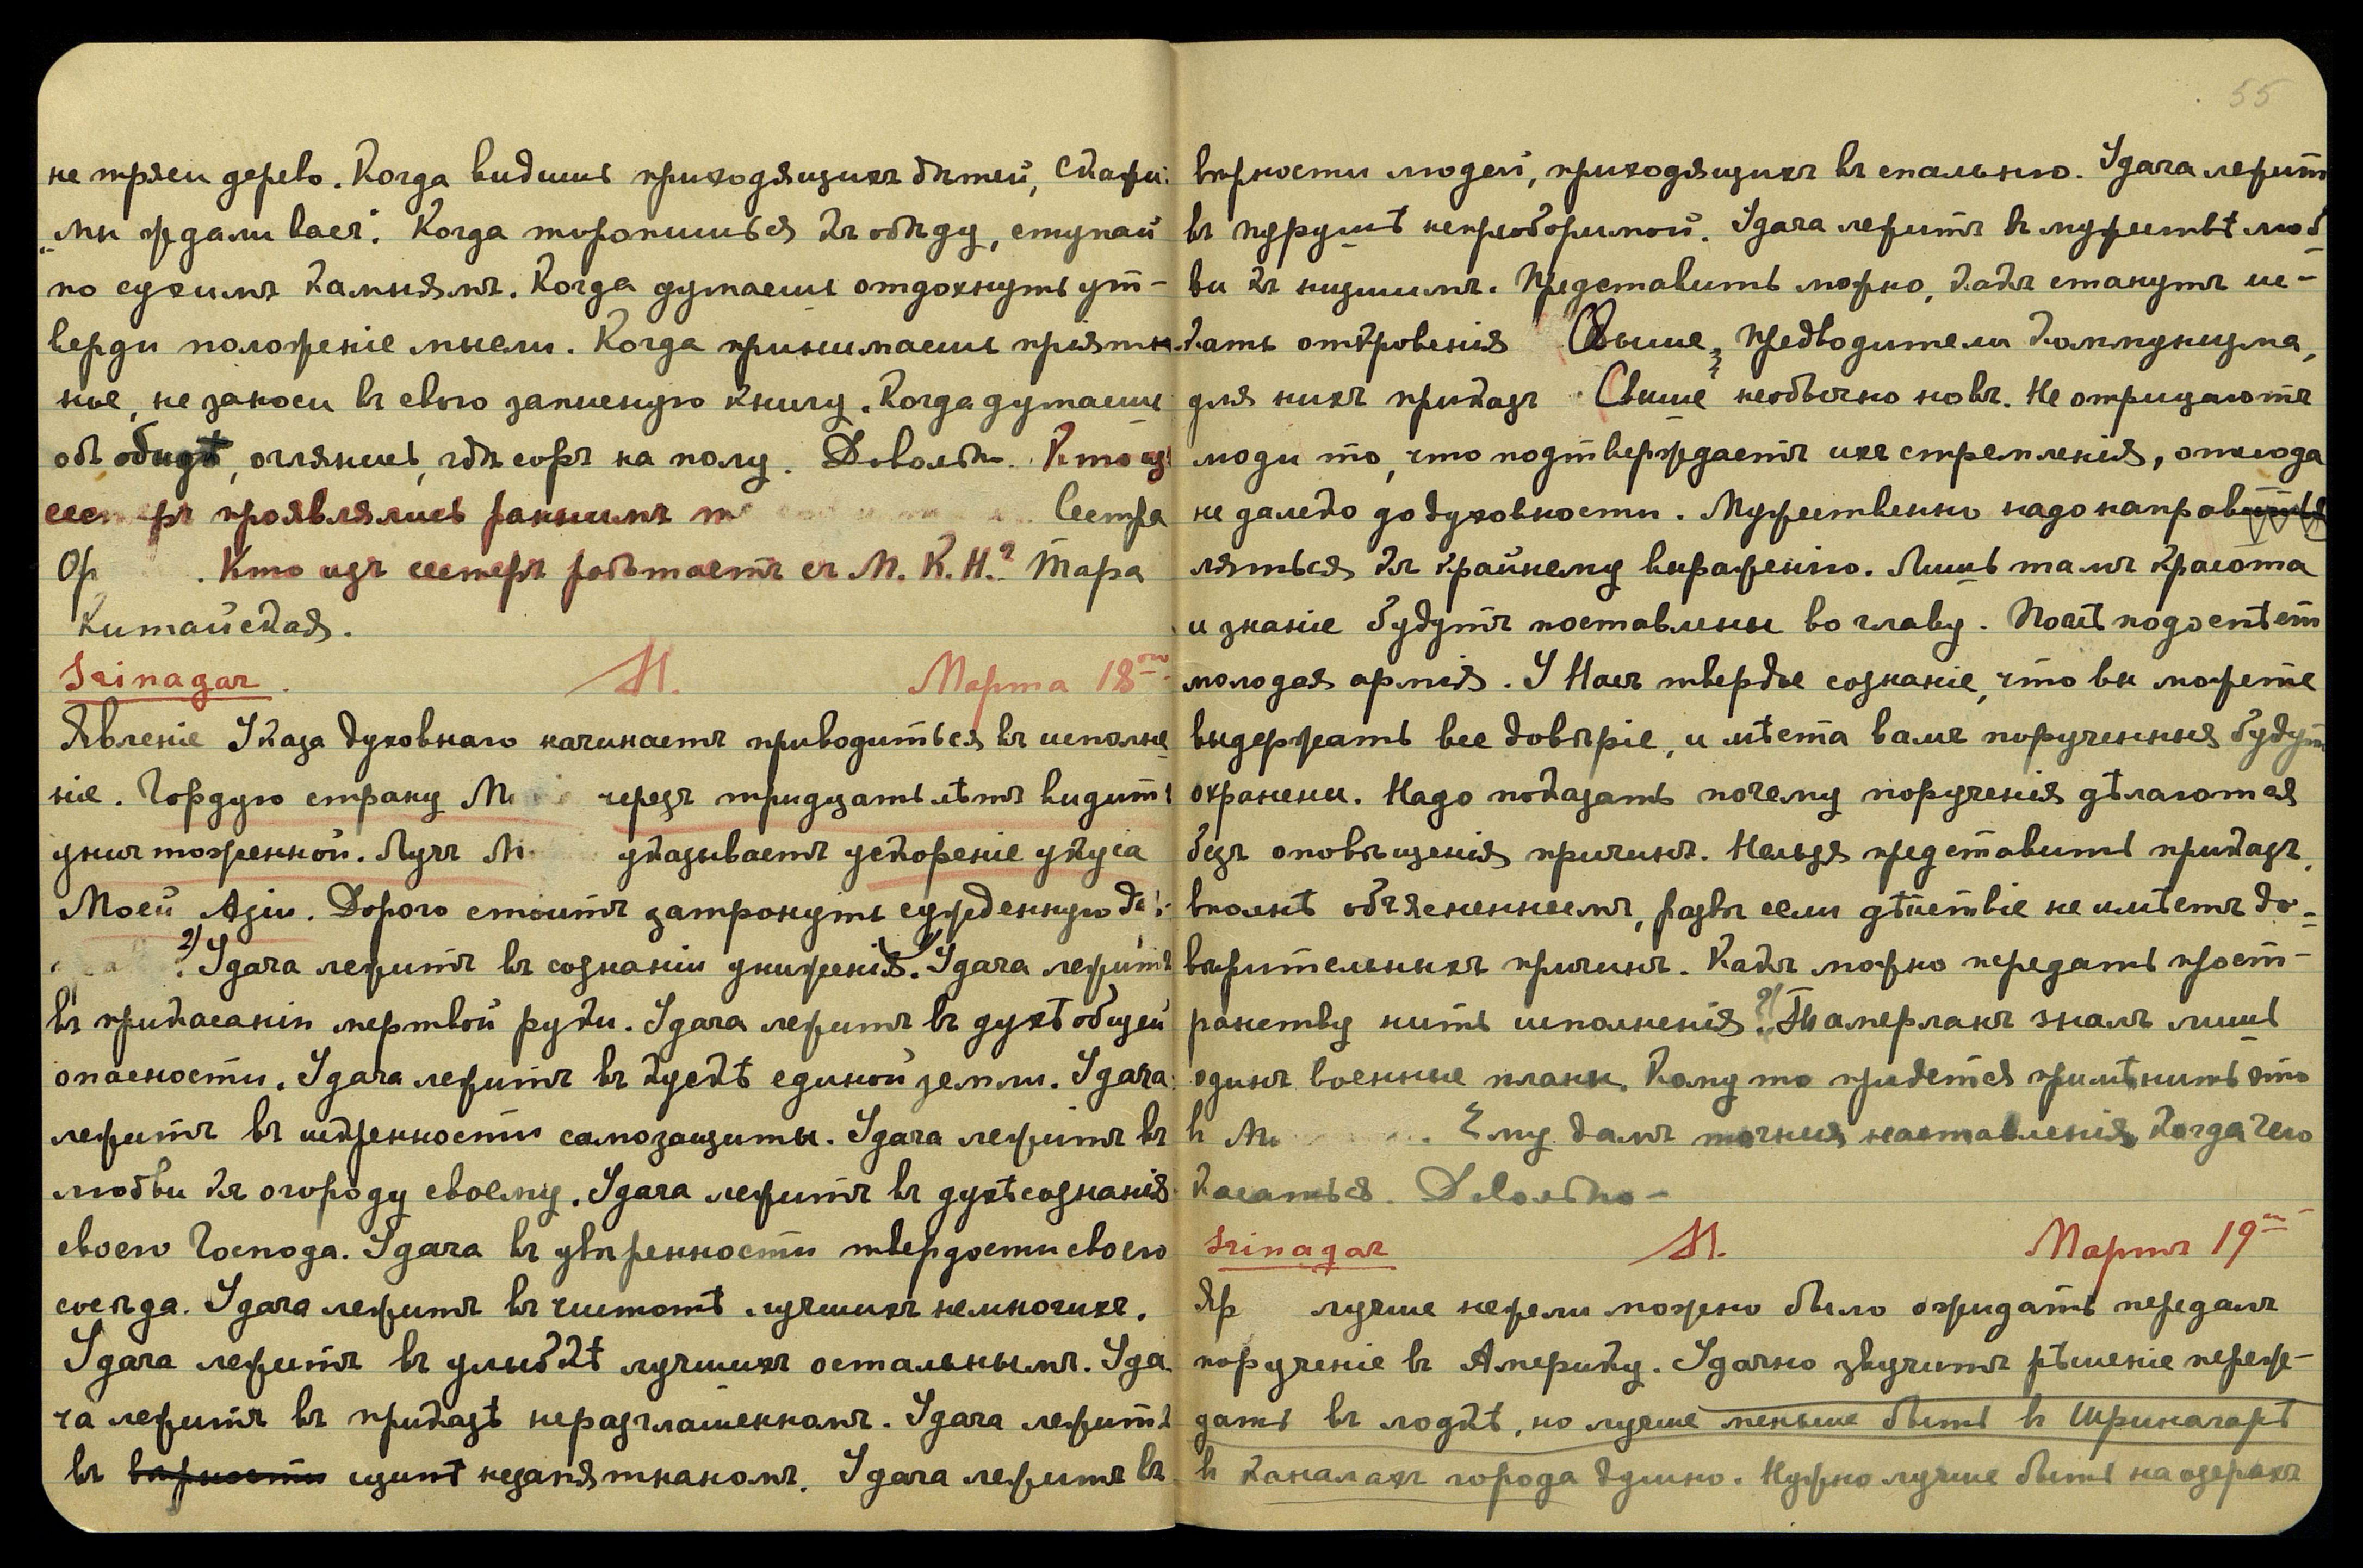 не тряси дерево. Когда видишь приходящихъ дѣтей, скажи:
„мы ждали васъ“. Когда торопишься къ обѣду, ступай
по сухимъ камнямъ. Когда думаешь отдохнуть ут-
верди положеніе мысли. Когда принимаешь пріят
ное, не заноси въ свою записную книгу. Когда думаешь
объ обидѣ, оглянись, гдѣ соръ на полу. Довольно. Кто изъ
сестеръ проявлялись раньше Сестра
Ор . Кто изъ сестеръ работаетъ съ М. К. Н.? Тара
Китайская.
Srinagar. М. Марта 18
Явленіе Указа духовнаго начинаетъ приводиться въ исполне
ніе. Гордую страну М черезъ тридцать лѣтъ видитъ
уничтоженной. Лучъ М указываетъ ускореніе укуса
Моей Азіи. Дорого стоитъ затронуть сужденную
2) Удача лежитъ въ сознаніи униженія. Удача лежитъ
въ прикасаніи мертвой руки. Удача лежитъ въ духѣ общей
опасности. Удача лежитъ въ кускѣ единой земли. Удача
лежитъ въ искренности самозащиты. Удача лежитъ въ
любви къ огороду своему. Удача лежитъ въ духѣ сознанія
своего Господа. Удача въ увѣренности твердости своего
сосѣда. Удача лежитъ въ чистотѣ лучшихъ немногихъ.
Удача лежитъ въ улыбкѣ лучшихъ остальнымъ. Уда
ча лежитъ въ приказѣ неразглашенномъ. Удача лежитъ
въ вѣрности щитѣ незапятнаномъ. Удача лежитъ въ
55
вѣрности людей, приходящихъ въ спальню. Удача лежитъ
въ Пурушѣ непреоборимой. Удача лежитъ въ мужествѣ люб
ви къ низшимъ. Представить можно, какъ станутъ ис-
кать откровенія Свыше, предводители коммунизма,
для нихъ приказъ Свыше необычно новъ. Не отрицаютъ
люди то, что подтверждаетъ ихъ стремленія, отсюда
не далеко до духовности. Мужественно надо направ
ляться къ крайнему выраженію. Лишь тамъ красота
и знаніе будутъ поставлены во главу. Послѣ подоспѣет
молодая армія. У Насъ твердое сознаніе, что вы можете
выдержать все довѣріе, и мѣста вамъ порученныя будут
охранены. Надо показать почему порученія дѣлаются
безъ оповѣщенія причинъ. Нельзя представить приказъ,
вполнѣ объясненнымъ, развѣ если дѣйствіе не имѣетъ до-
вѣрительныхъ причинъ. Какъ можно передать прост-
ранству нить исполненія? Тамерланъ зналъ лишь
одинъ военные планы. Кому то придется примѣнить это
в М . Ему далъ точныя наставленія, когда чего
касаться. Довольно –
Srinagar М. Мартъ 19
Яр лучше нежели можно было ожидать передалъ
порученіе въ Америку. Удачно звучитъ рѣшеніе переж-
дать въ лодкѣ, но лучше меньше быть въ Шринагарѣ
въ каналахъ города душно. Нужно лучше быть на озерахъ